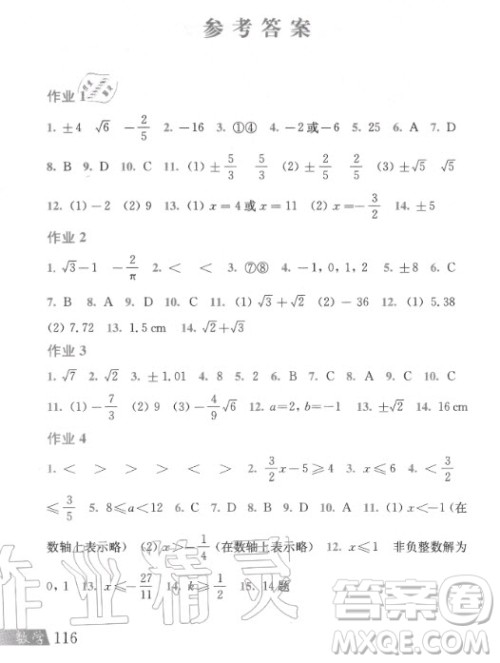 参考答案
作业1
1. ±4 √6 -2/5 2. -16 3. ①④ 4. -2或-6 5. 25 6. A 7. D
8. B 9. D 10. C 11. (1) ±5/3 5/3 (2) ±5/5 5/5 (3) ±√5 √5
12. (1) -2 (2) 9 13. (1) x=4或x=11 (2) x=-3/2 14. ±5
作业2
1. √3-1 -2/π 2. < < 3. ⑦⑧ 4. -1, 0, 1, 2 5. ±8 6. C
7. B 8. A 9. D 10. C 11. (1) √3+√2 (2) -36 12. (1) 5.38
(2) 7.72 13. 1.5 cm 14. √2+√3
作业3
1. √7 2. √2 3. ±1.01 4. 8 5. 2 6. B 7. C 8. A 9. C 10. C
11. (1) -7/3 (2) 9 (3) -4/9√6 12. a=2, b=-1 13. ±√2 14. 16 cm
作业4
1. < > > > < 2. 3/2x-5≥4 3. x<1 4. <3/2
≤3/5 5. 8≤a<12 6. C 7. D 8. D 9. B 10. A 11. (1) x<-1 (在
数轴上表示略) (2) x>-1/4 (在数轴上表示略) 12. x≤1 非负整数解为
0, 1 13. x≤-27/11 14. k≥1/2 15. 14题
作业精灵
答案卷
数学 116